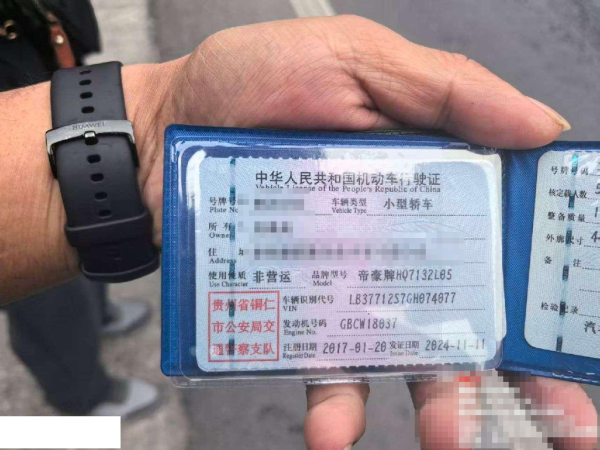 HUAWEI
中华人民共和国机动车行驶证
Vehicle License of the People's Republic of China
号牌号
Plate No
车辆类型 小型轿车
Vehicle Type
所 有
Owner
住
Address
使用性质 非营运 品牌型号 帝豪牌HQ7132L05
Use Character
贵州省铜仁
市公安局交
通警察支队
车辆识别代号 LB37712S7GH074077
VIN
发动机号码 GBCW18037
Engine No.
注册日期 2017-01-20 发证日期 2024-11-11
Register Date Issue Date
号牌号
核定载人数
整备质量
外廓尺寸
备 注
检验记录